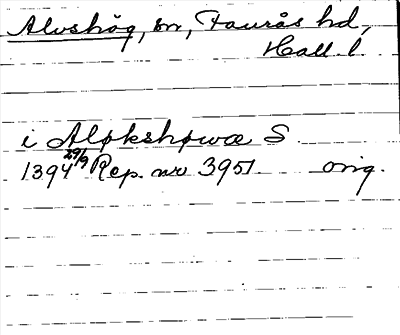 Alvshög, sn, Faurås hd,
Hall. l.
i Alpkshpwæ S
1394 29/9 Rep. nr 3951 orig.